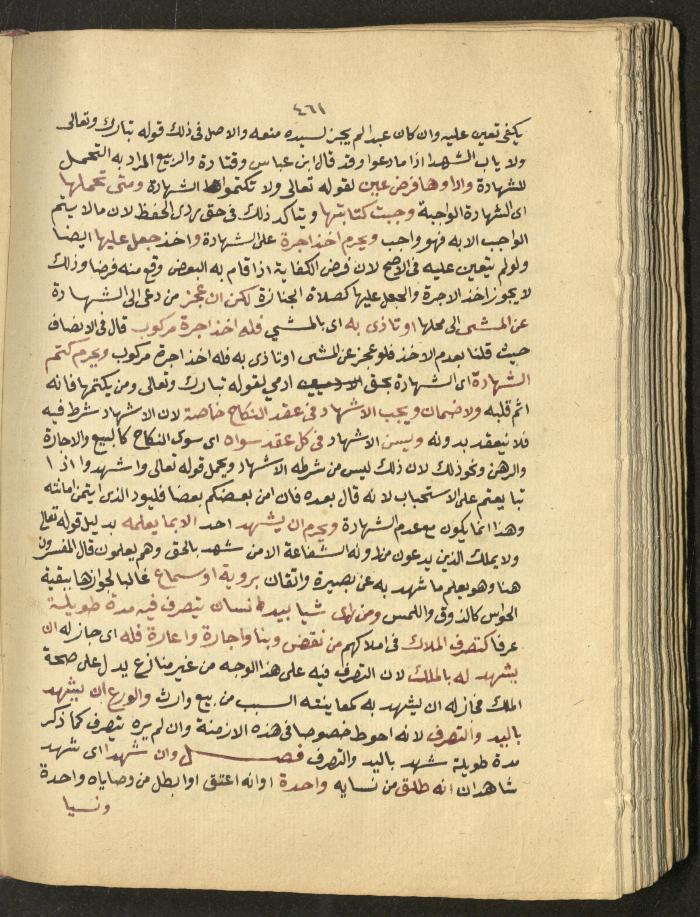 ٤٦١
يكفي تعين عليه وان كان عبدا لم يجز لسيده منعه والاصل في ذلك قوله تبارك وتعالى
ولا ياب الشهدا اذا ما دعوا وقد قال ابن عباس وقتادة والربيع المراد به التحمل
للشهادة واداوها فرض عين لقوله تعالى ولا تكتموا الشهادة ومتى تحملها
اى الشهادة الواجبة وجبت كتابتها ويتاكد ذلك في حق ردى الحفظ لان ما لا يتم
الواجب الا به فهو واجب ويحرم اخذ اجرة على الشهادة واخذ جعل عليها ايضا
ولو لم يتعين عليه في الاصح لان فرض الكفاية اذا قام به البعض وقع منه فرضا وذلك
لا يجوز اخذ الاجرة والجعل عليها كصلاة الجنازة لكن ان عجز من دعى الى الشهادة
عن المشى الى محلها او تاذى به اى بالمشي فله اخذ اجرة مركوب قال في الانصاف
حيث قلنا بعدم الاخذ فلو عجز عن المشى او تاذى به فله اخذ اجرة مركوب ويحرم كتم
الشهادة اى الشهادة بحق ادمي لقوله تبارك وتعالى ومن يكتمها فانه
اثم قلبه ولا ضمان ويجب الاشهاد في عقد النكاح خاصة لان الاشهاد شرط فيه
فلا ينعقد بدونه ويسن الاشهاد في كل عقد سواه اى سوى النكاح كالبيع والاجارة
والرهن ونحو ذلك لان ذلك ليس من شرطه الاشهاد ويحمل قوله تعالى واشهدوا اذا
تبايعتم على الاستحباب لانه قال بعده فان امن بعضكم بعضا فليود الذي ايتمن امانته
وهذا انما يكون مع عدم الشهادة ويحرم ان يشهد احد الا بما يعلمه بدليل قوله تعالى
ولا يملك الذين يدعون من دونه الشفاعة الا من شهد بالحق وهم يعلمون قال المفسرون
هنا وهو يعلم ما شهد به عن بصيرة واتقان بروية او سماع غالبا لجوازها ببقية
الحواس كالذوق واللمس ومن راى شيا بيد انسان يتصرف فيه مدة طويلة
عرفا كتصرف الملاك في املاكهم من نقض وبنا واجارة واعارة فله اى جاز له ان
يشهد له بالملك لان التصرف فيه على هذا الوجه من غير منازع يدل على صحة
الملك فجاز له ان يشهد به كمعاينة السبب من بيع وارث والورع ان يشهد
باليد والتصرف لانه احوط خصوصا في هذه الازمنة وان لم يره يتصرف كما ذكر
مدة طويلة شهد باليد والتصرف فصل وان شهدا اى شهد
شاهدان انه طلق من نسايه واحدة او انه اعتق او ابطل من وصاياه واحدة
ونسيا